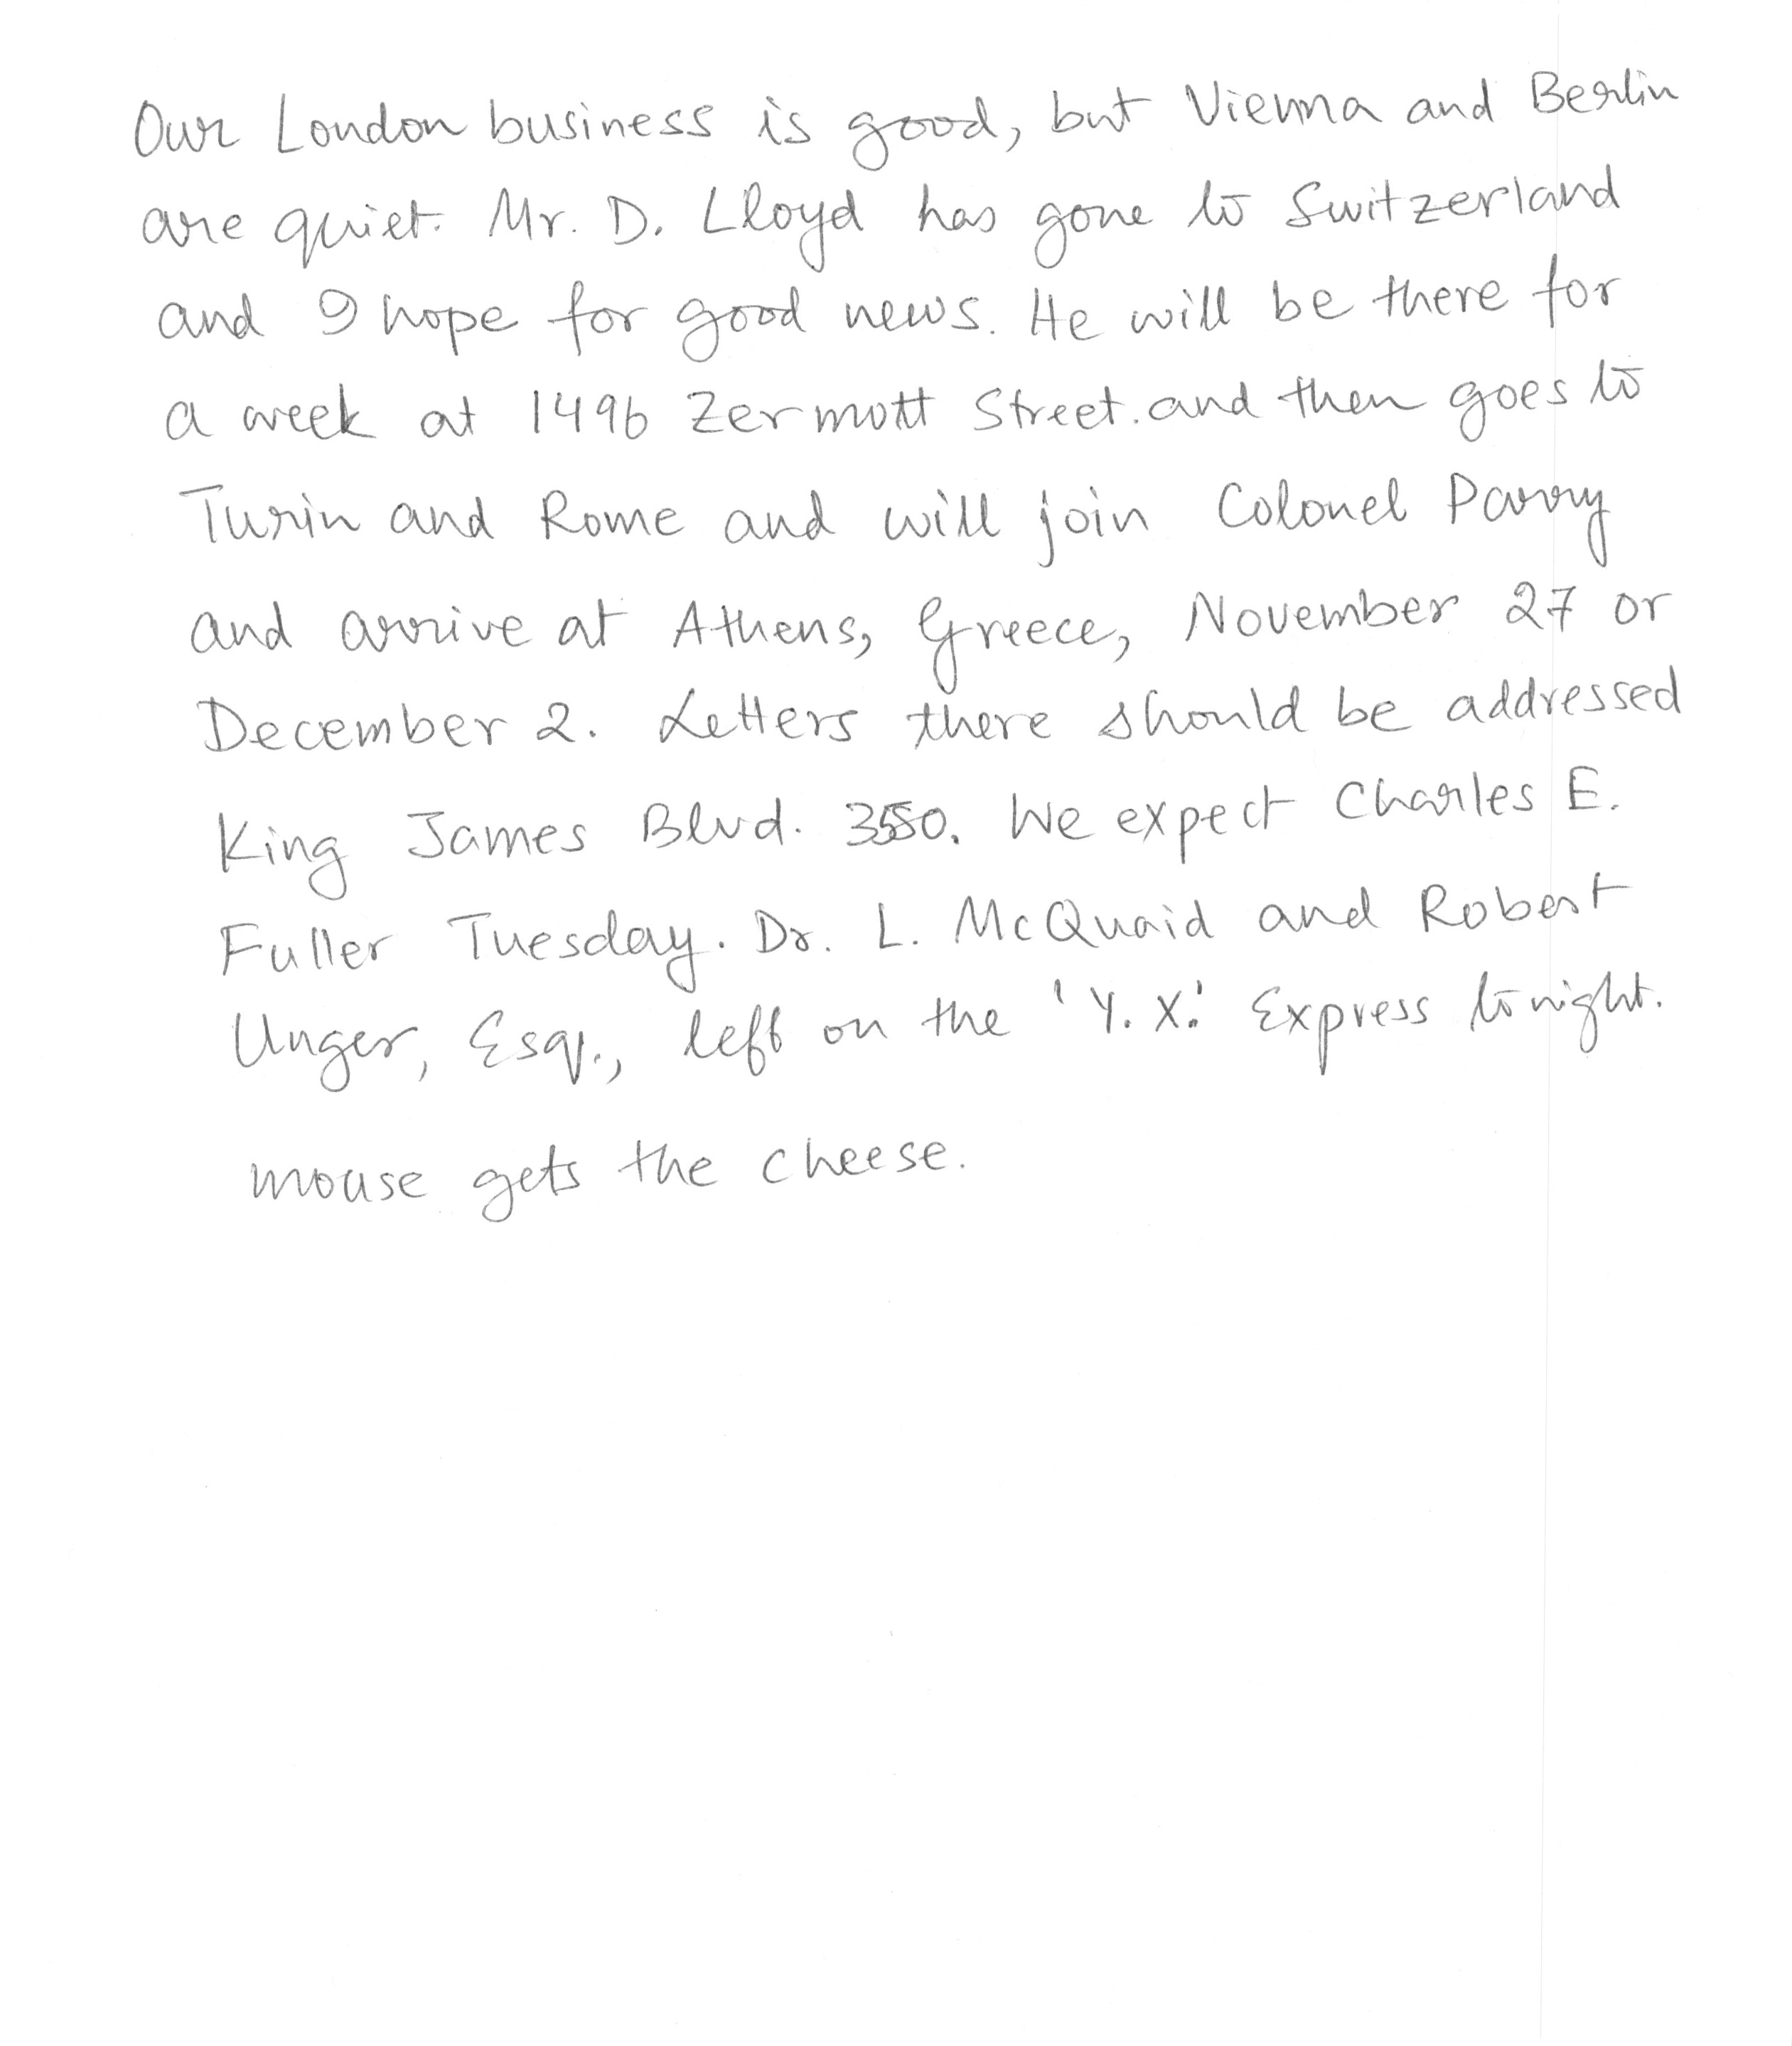 Our London business is good, but Vienna and Berlin
are quiet. Mr. D. Lloyd has gone to Switzerland
and I hope for good news. He will be there for
a week at 1496 Zermott Street. and then goes to
Turin and Rome and will join Colonel Parry
and arrive at Athens, Greece, November 27 or
December 2. Letters there should be addressed
King James Blvd. 3580. We expect Charles E.
Fuller Tuesday. Dr. L. McQuaid and Robert
Unger, Esq., left on the 'Y. X.' Express tonight.
mouse gets the cheese.